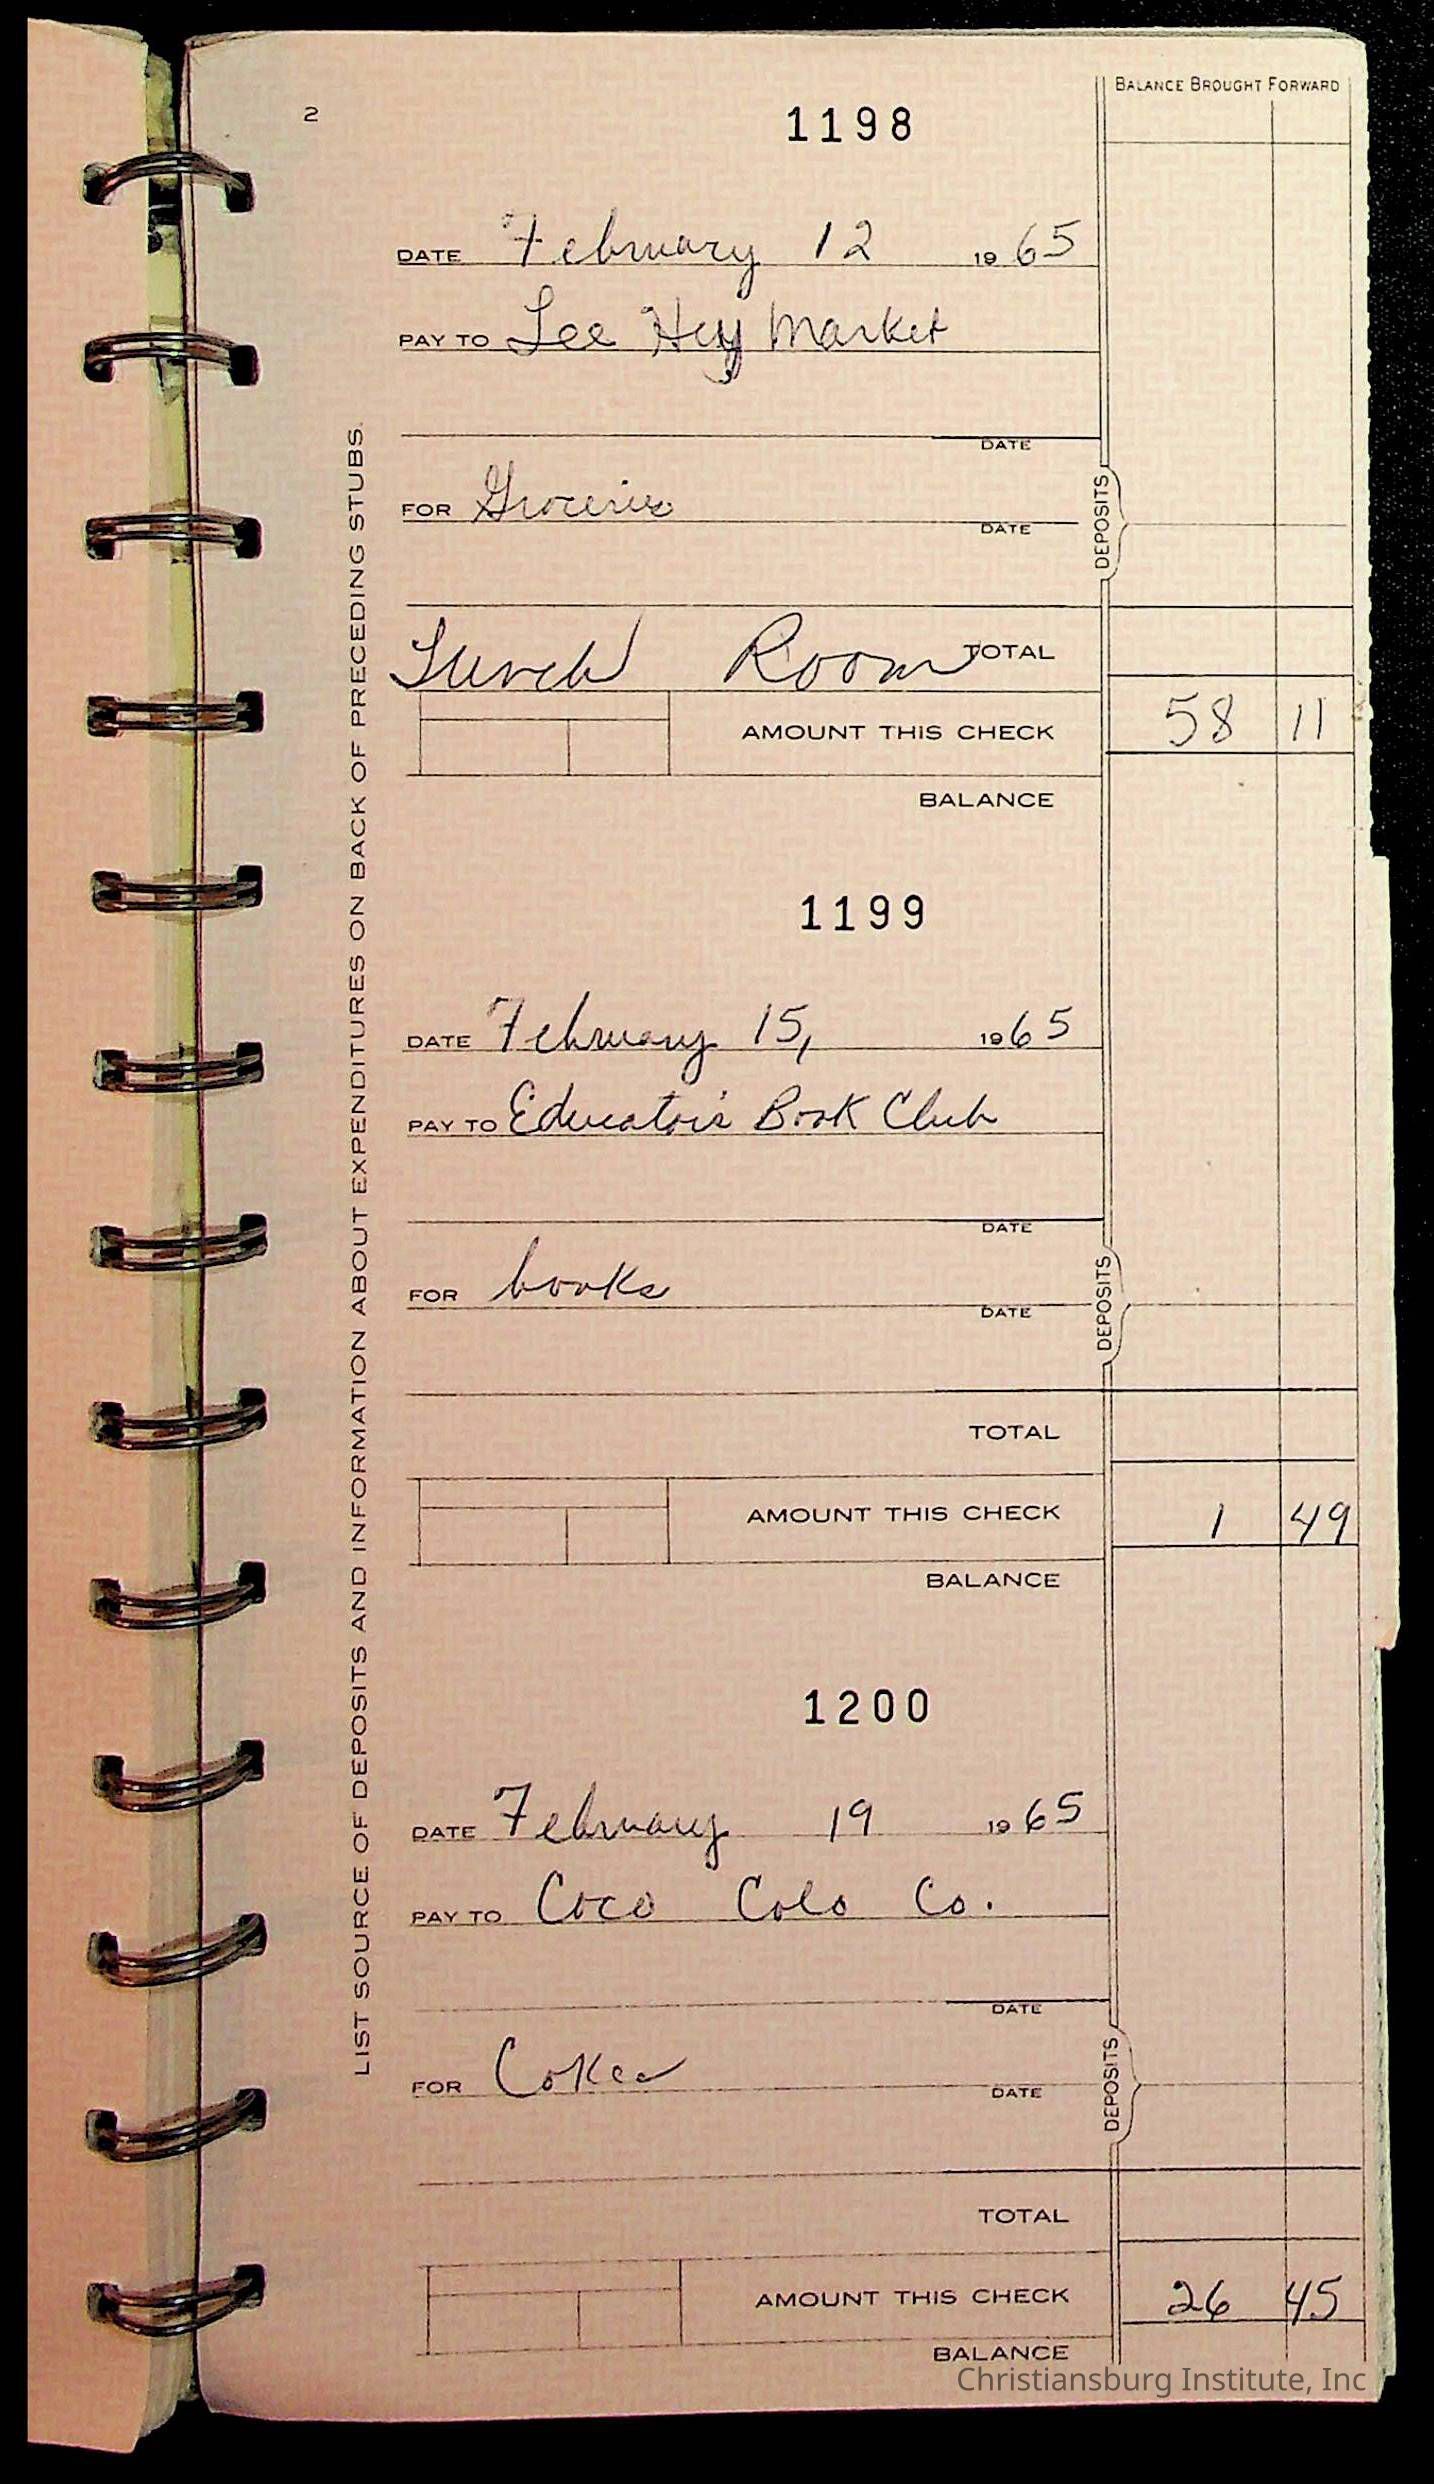 2
BALANCE BROUGHT FORWARD
1198
DATE February 12 1965
PAY TO Lee Hy Market
DATE
FOR Groceries
DATE
DEPOSITS
Lunch Room TOTAL
AMOUNT THIS CHECK 58 11
BALANCE
LIST SOURCE OF DEPOSITS AND INFORMATION ABOUT EXPENDITURES ON BACK OF PRECEDING STUBS.
1199
DATE February 15, 1965
PAY TO Educator's Book Club
DATE
FOR books
DATE
DEPOSITS
TOTAL
AMOUNT THIS CHECK 1 49
BALANCE
1200
DATE February 19 1965
PAY TO Coco Colo Co.
DATE
FOR Cokes
DATE
DEPOSITS
TOTAL
AMOUNT THIS CHECK 26 45
BALANCE
Christiansburg Institute, Inc